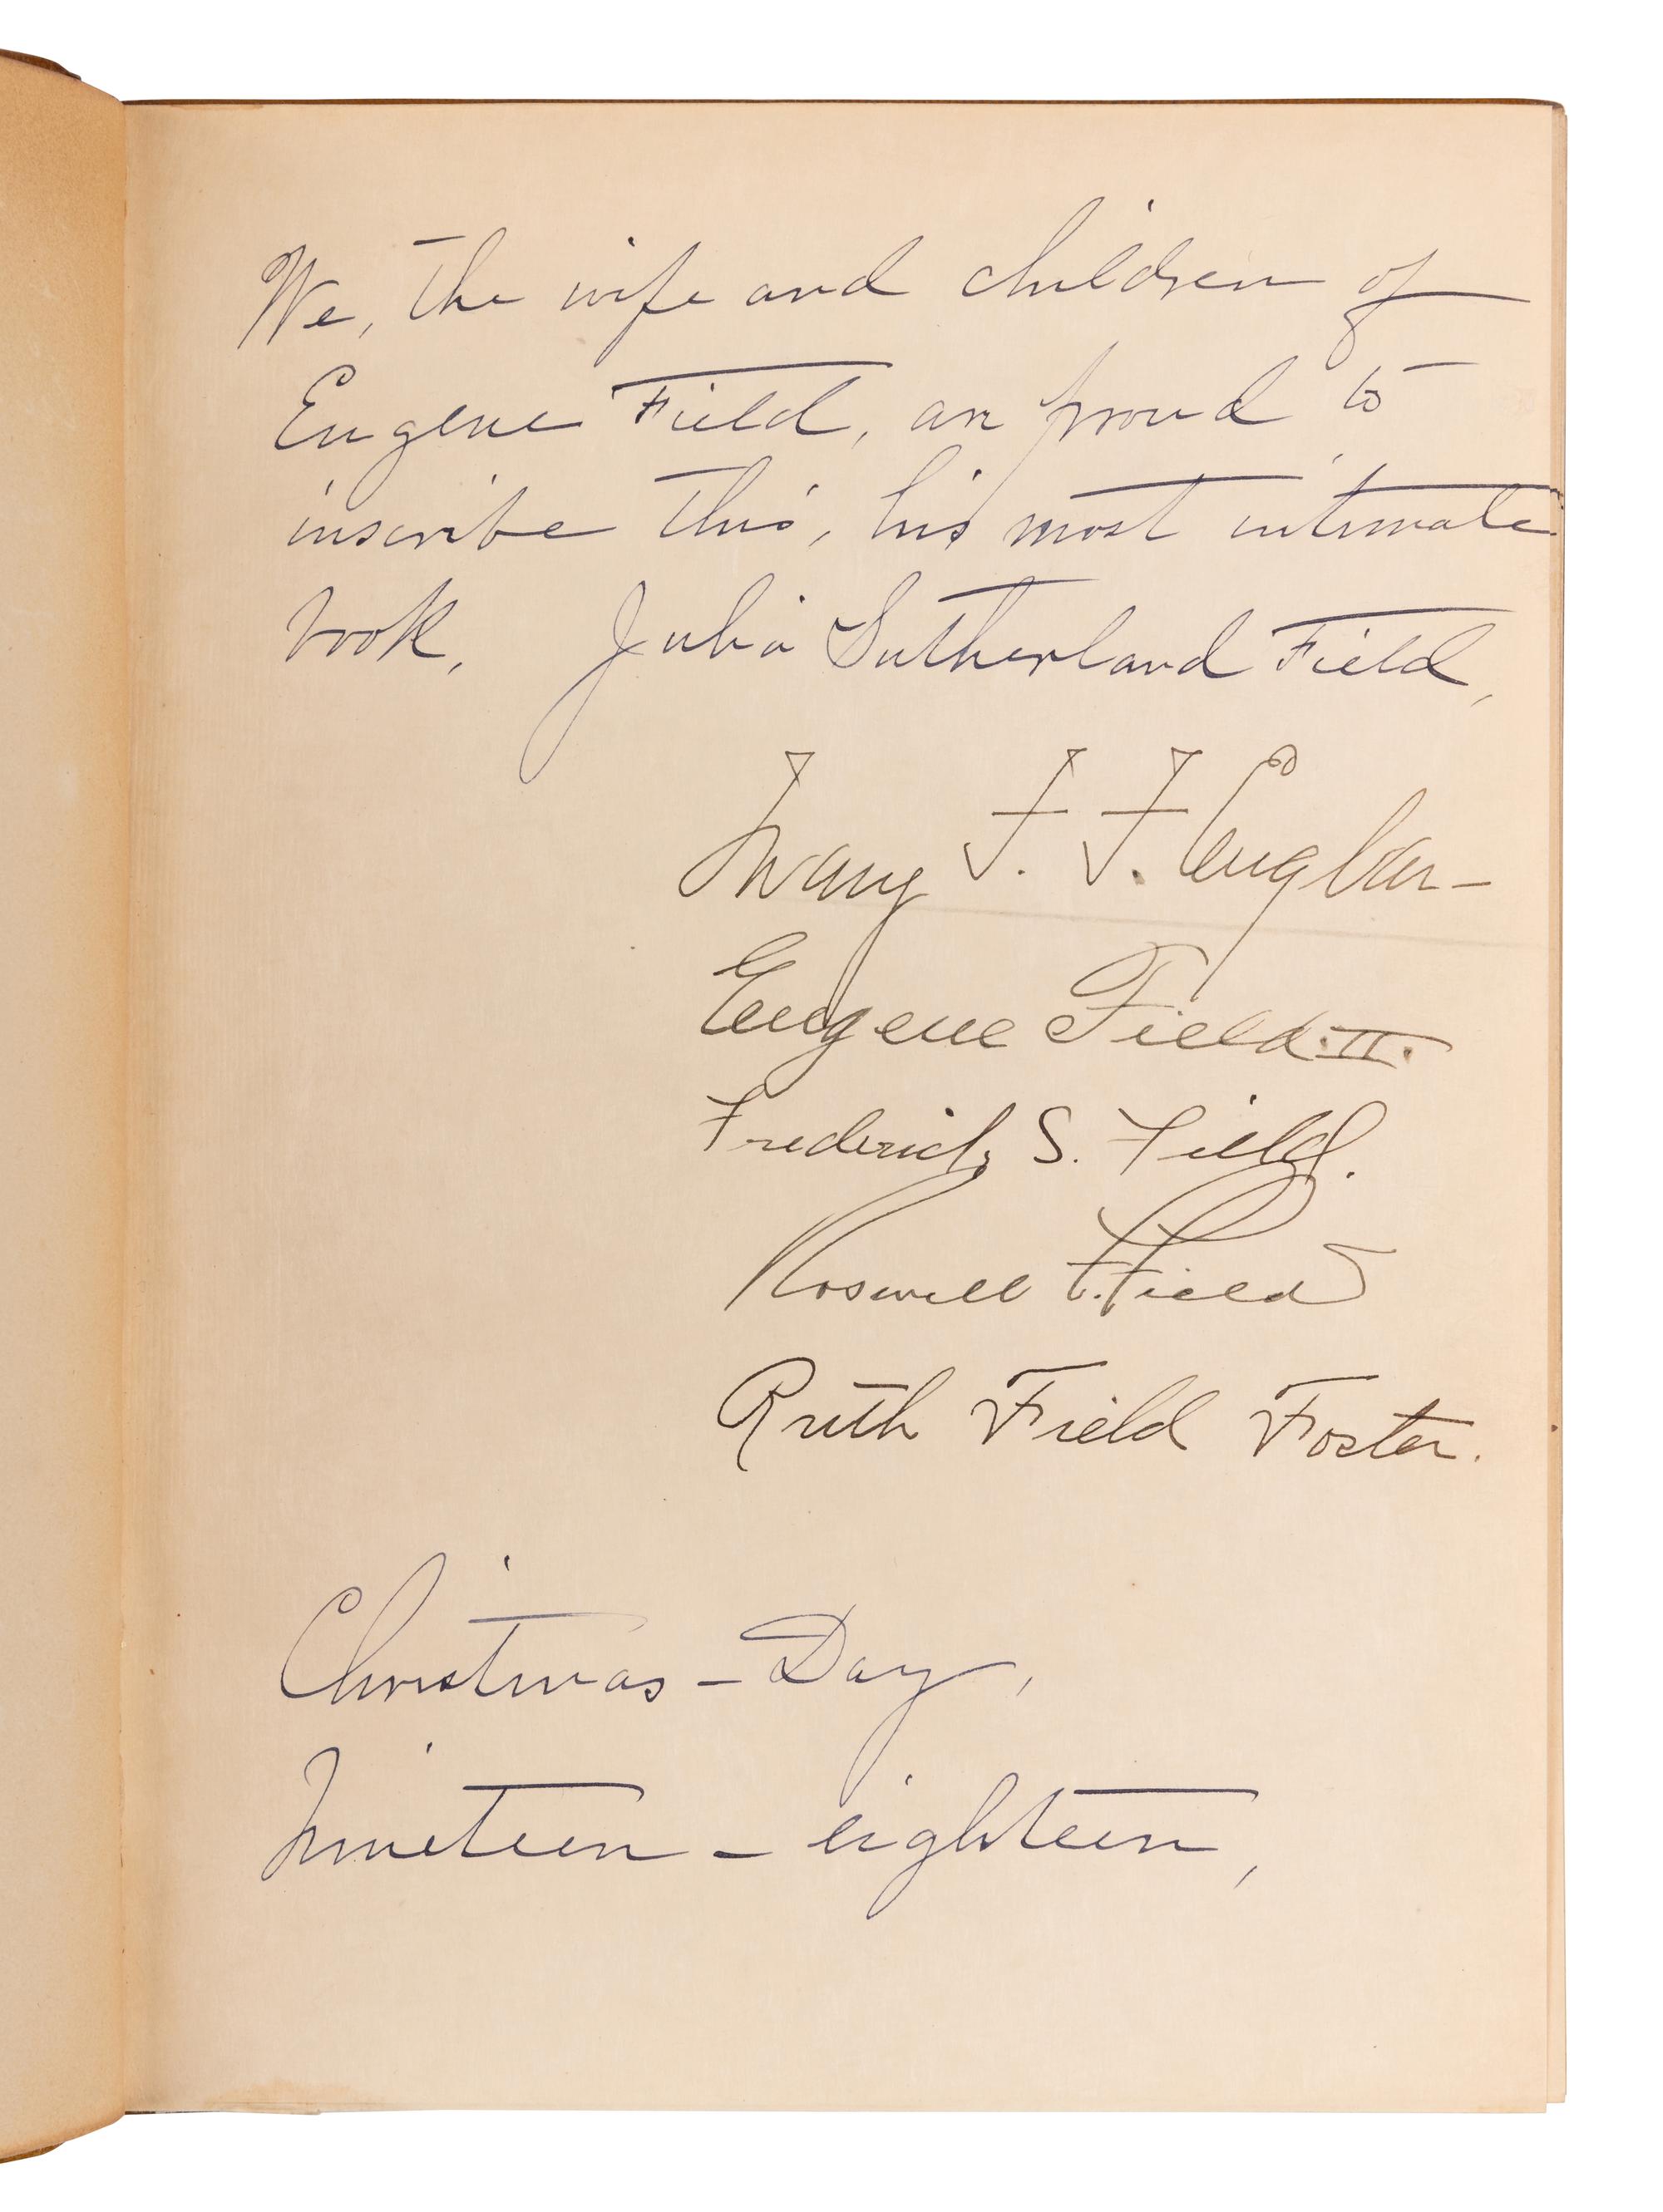 We, the wife and children of
Eugene Field, are proud to
inscribe this, his most intimate
book, Julia Sutherland Field,
Mary F. F. Englar –
Eugene Field. II.
Frederick S. Field.
Roswell F. Field
Ruth Field Foster.
Christmas – Day,
Nineteen – eighteen,